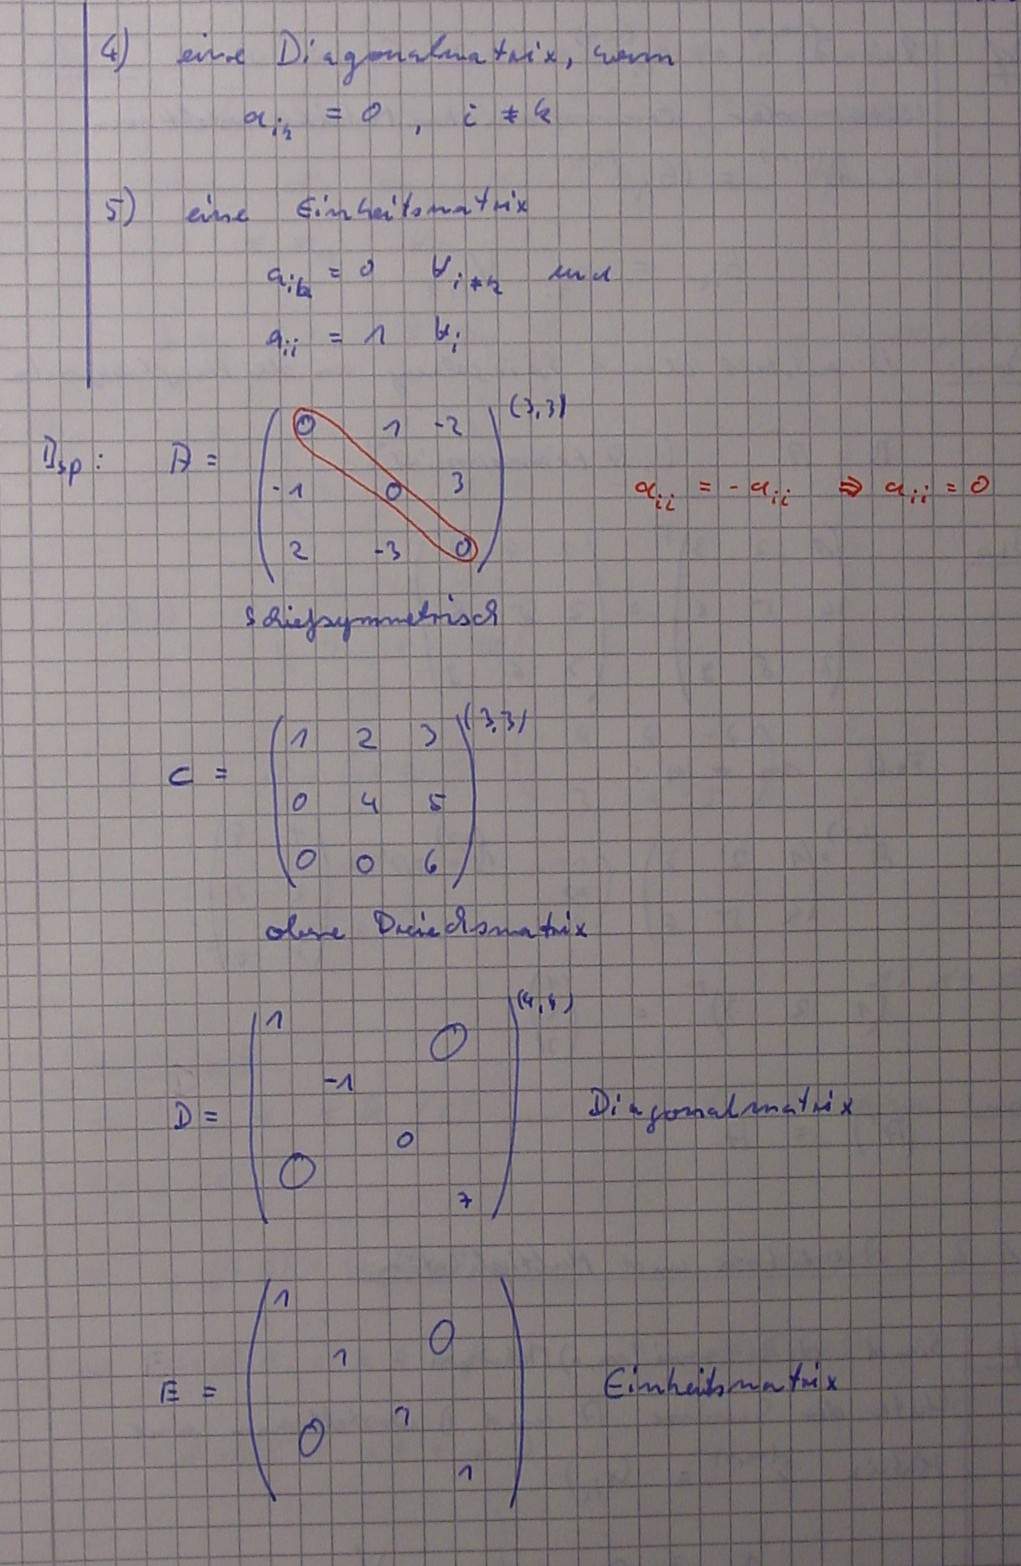 4) eine Diagonalmatrix, wenn
a_ik = 0 , i ≠ k
5) eine Einheitsmatrix
a_ik = 0 ∀ i≠k und
a_ii = 1 ∀ i
Bsp: A = ( 0 1 -2 (3,3)
-1 0 3 a_ii = -a_ii ⇒ a_ii = 0
2 -3 0 )
schiefsymmetrisch
C = ( 1 2 3 (3,3)
0 4 5
0 0 6 )
obere Dreiecksmatrix
D = ( 1 0 (4,4)
-1
0
0 7 ) Diagonalmatrix
E = ( 1 0
1
0 1
1 ) Einheitsmatrix